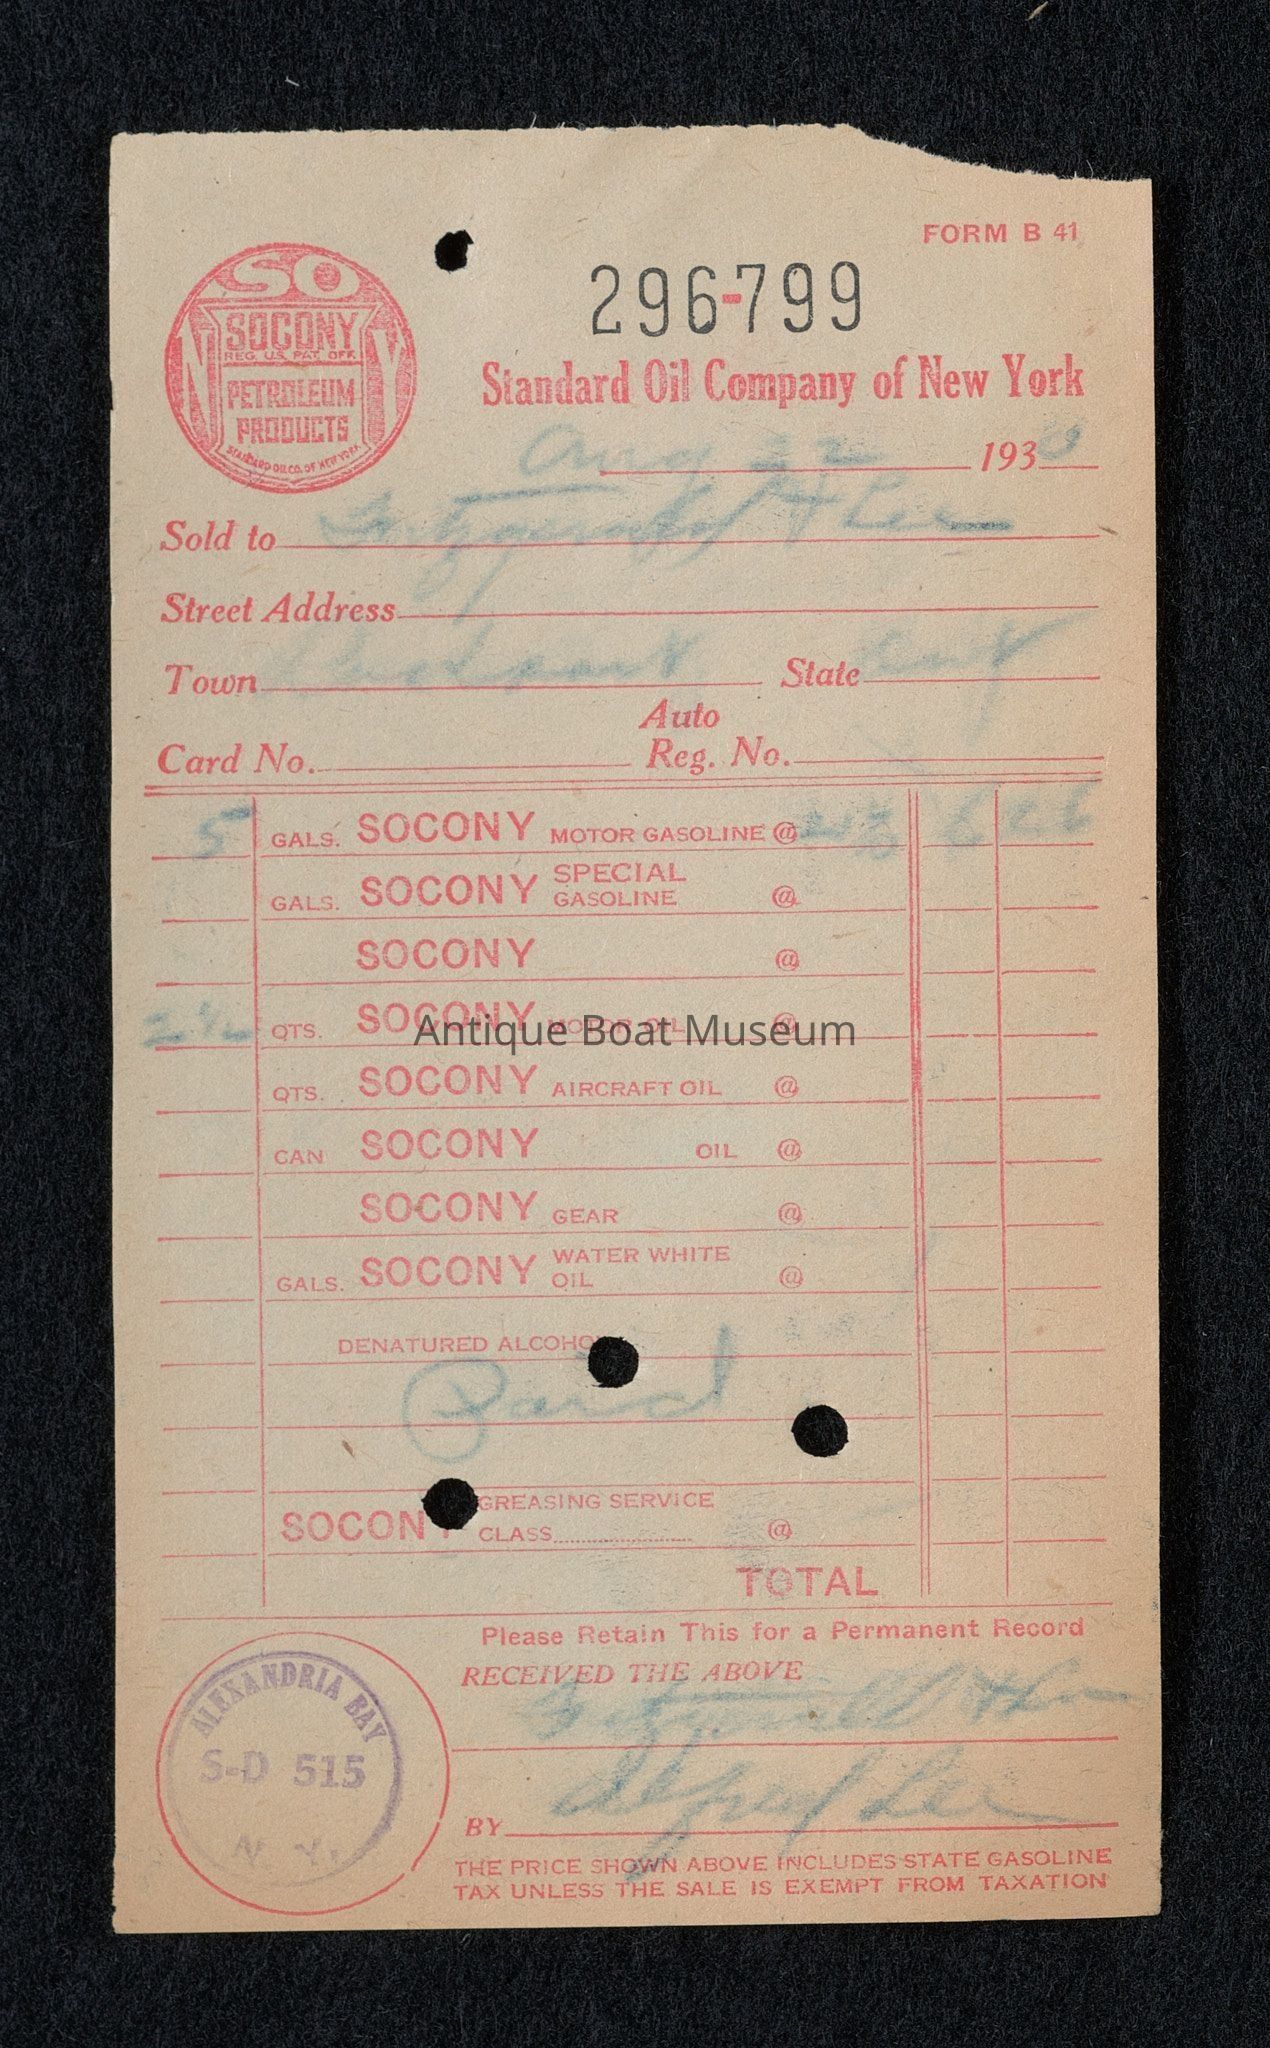 FORM B 41
296-799
SO
SOCONY
REG. U.S. PAT. OFF.
N Y
PETROLEUM
PRODUCTS
STANDARD OIL CO. OF NEW YORK
Standard Oil Company of New York
Aug 22 1930
Sold to Fitzgerald & Lee
Street Address
Town State N Y
Auto
Card No. Reg. No.
5 GALS. SOCONY MOTOR GASOLINE @
GALS. SOCONY SPECIAL GASOLINE @
SOCONY @
QTS. SOCONY MOTOR OIL @
Antique Boat Museum
QTS. SOCONY AIRCRAFT OIL @
CAN SOCONY OIL @
SOCONY GEAR @
GALS. SOCONY WATER WHITE OIL @
DENATURED ALCOHO
Paid
SOCONY GREASING SERVICE
CLASS @
TOTAL
Please Retain This for a Permanent Record
RECEIVED THE ABOVE
Fitzgerald & Lee
BY Alfred Lee
ALEXANDRIA BAY
S-D 515
N. Y.
THE PRICE SHOWN ABOVE INCLUDES STATE GASOLINE
TAX UNLESS THE SALE IS EXEMPT FROM TAXATION